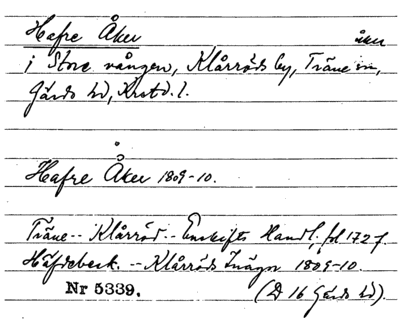 Hafre Åker åker
i Store vången, Klårröds by, Träne sn,
Gärds hd, Krstd. l.
Hafre Åker 1809-10.
Träne -- Klårröd -- Enskifts Handl. fol 172 f.
Häfdebeck. -- Klårröds Inägor 1809-10.
Nr 5339. (D 16 Gärds hd).